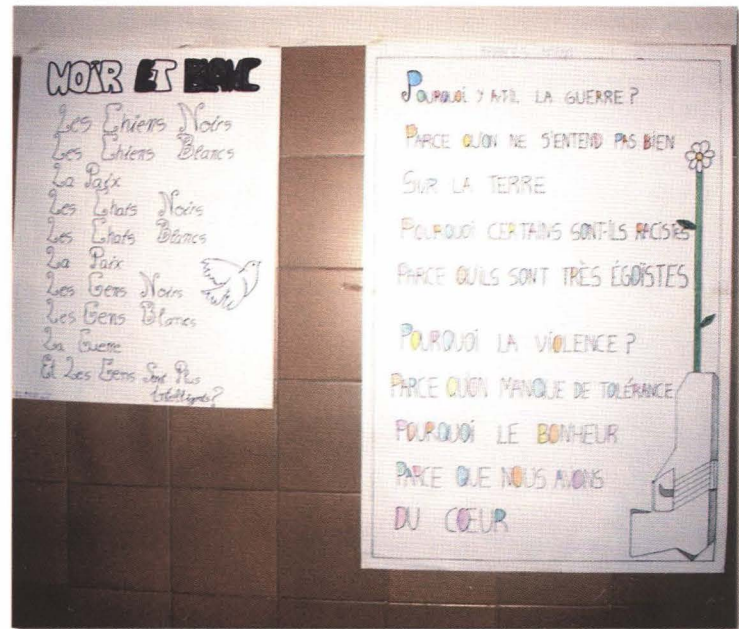 NOIR ET BLANC
Les Chiens Noirs
Les Chiens Blancs
La Paix
Les Chats Noirs
Les Chats Blancs
La Paix
Les Gens Noirs
Les Gens Blancs
La Guerre
Et Les Gens Sont Plus
Intelligents?
POURQUOI Y A-T-IL LA GUERRE ?
PARCE QU'ON NE S'ENTEND PAS BIEN
SUR LA TERRE
POURQUOI CERTAINS SONT-ILS RACISTES
PARCE QU'ILS SONT TRÈS ÉGOÏSTES
POURQUOI LA VIOLENCE ?
PARCE QU'ON MANQUE DE TOLÉRANCE
POURQUOI LE BONHEUR
PARCE QUE NOUS AVONS
DU CŒUR